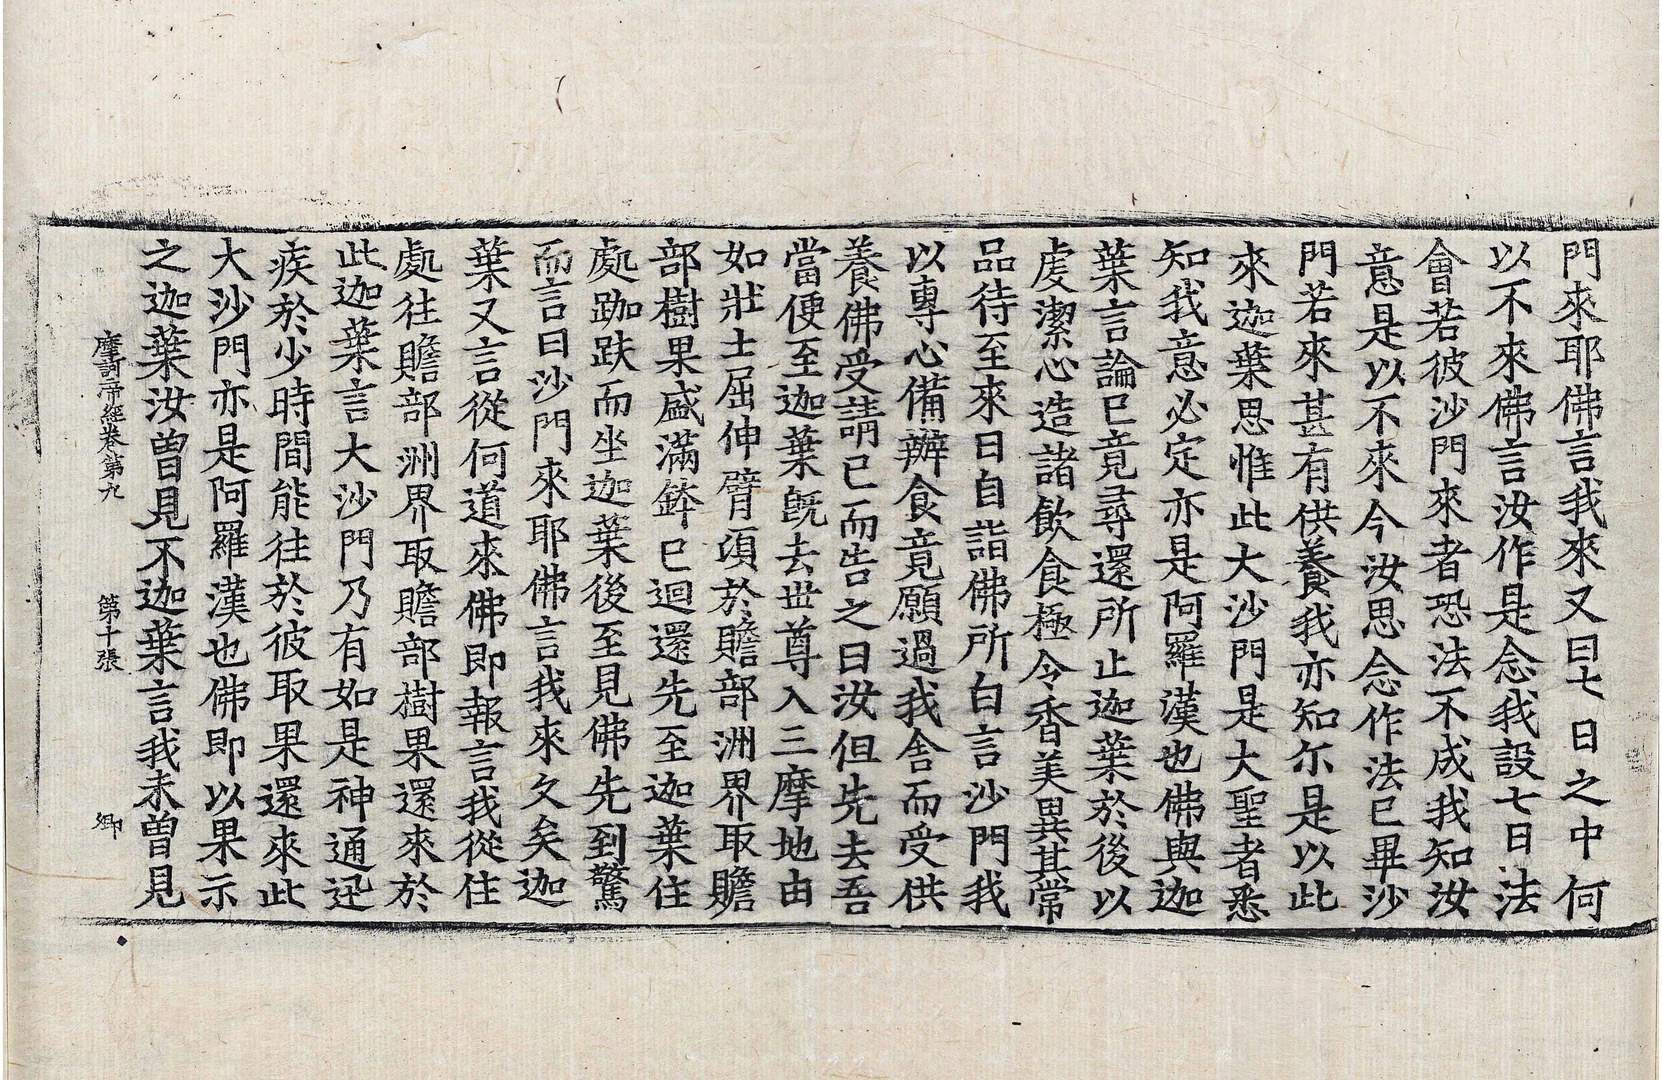 門來耶佛言我來又曰七日之中何
以不來佛言汝作是念我設七日法
會若彼沙門來者恐法不成我知汝
意是以不來今汝思念作法已畢沙
門若來甚有供養我亦知尒是以此
來迦葉思惟此大沙門是大聖者悉
知我意必定亦是阿羅漢也佛與迦
葉言論已竟尋還所止迦葉於後以
虔潔心造諸飲食極令香美異其常
品待至來日自詣佛所白言沙門我
以專心備辦食竟願過我舍而受供
養佛受請已而告之曰汝但先去吾
當便至迦葉旣去世尊入三摩地由
如壯士屈伸臂須於贍部洲界取贍
部樹果盛滿鉢已迴還先至迦葉住
處跏趺而坐迦葉後至見佛先到驚
而言曰沙門來耶佛言我來久矣迦
葉又言從何道來佛即報言我從住
處往贍部洲界取贍部樹果還來於
此迦葉言大沙門乃有如是神通迅
疾於少時間能往於彼取果還來此
大沙門亦是阿羅漢也佛即以果示
之迦葉汝曾見不迦葉言我未曾見
摩訶帝經卷第九 第十張 卿